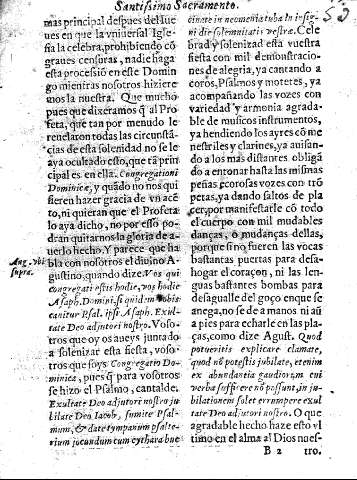 Santissimo Sacramento.
mas principal despues del Iue
ues en que la vniuersal Igle-
sia la celebra, prohibiendo cõ
graues censuras, nadie haga
esta procession en este Domin
go mientras nosotros hiziere
mos la nuestra. Que mucho
pues que dixeramos q̃ al Pro
feta, que tan por menudo le
reuelaron todas las circunstã
cias de esta solenidad no se le
aya ocultado esto, que tã prin
cipal es en ella. Congregationi
Dominicæ, y quãdo no nos qui
sieren hazer gracia de vn acẽ
to, ni quieran que el Profeta
lo aya dicho, no por esso po-
dran quitarnos la gloria de a-
uerlo hecho. Y parece que ha
bla con nosotros el diuino A-
gustino, quando dize. Vos qui
congregati estis hodie, vos hodie
Asaph. Domini, si quidem vobis
canitur Psal. ipsi Asaph. Exul-
tate Deo adjutori nostro. Voso-
tros que oy os aueys juntado
a solenizar esta fiesta, voso-
tros que soys Congregatio Do-
minica, pues q̃ para vosotros
se hizo el Psalmo, cantalde.
Exultate Deo adjutori nostro ju
bilate Deo Iacob, sumite Psal-
mum, & date tympanum psalte-
rium jocundum cum cythara buc
Aug. vbi
supra.
cinate in neomenia tuba in insig-
ni die solemnitatis vestræ. Cele
brad y solenizad esta vuestra
fiesta con mil demonstracio-
nes de alegria, ya cantando a
coros, Psalmos y motetes, ya
acompañando las vozes con
variedad y armonia agrada-
ble de musicos instrumentos,
ya hendiendo los ayres cõ me
nestriles y clarines, ya auisan-
do a los mas distantes obligã
do a entonar hasta las mismas
peñas ecorosas vozes con trõ
petas, ya dando saltos de pla
cer, por manifestarle cõ todo
el cuerpo con mil mudables
danças, o mudanças dellas,
porque sino fueren las vocas
bastantes puertas para desa-
hogar el coraçon, ni las len-
guas bastantes bombas para
desagualle del goço en que se
anega, no se de a manos ni aũ
a pies para echarle en las pla-
ças, como dize Agust. Quod
potueritis explicare clamate,
quod nõ potestis jubilate, etenim
ex abundantia gaudiorum cui
verba sufficere nõ possunt, in ju-
bilationem solet errumpere exul
tate Deo adjutori nostro. O que
agradable hecho haze esto vl
timo en el alma a Dios nues-
B 2 tro.